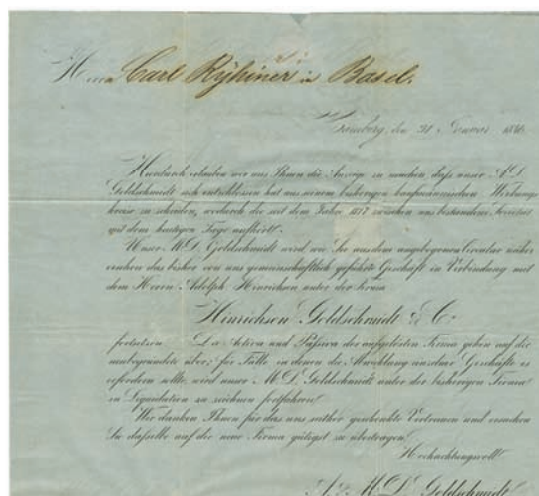 Herrn Carl Ryhiner in Basel.
Hamburg, den 31 Januar 1846
Hierdurch erlauben wir uns Ihnen die Anzeige zu machen, dass unser A. D.
Goldschmidt sich entschlossen hat aus seinem bisherigen kaufmännischen Wirkungs
kreise zu scheiden, wodurch die seit dem Jahre 1817 zwischen uns bestandene Societät
mit dem heutigen Tage aufhört.
Unser M. D. Goldschmidt wird wie Sie aus dem angebogenen Circular näher
ersehen das bisher von uns gemeinschaftlich geführte Geschäft in Verbindung mit
dem Herrn Adolph Hinrichsen unter der Firma
Hinrichsen Goldschmidt & Co
fortsetzen. Die Activa und Passiva der aufgelösten Firma gehen auf die
neubegründete über; für Fälle, in denen die Abwicklung einzelner Geschäfte es
erfordern sollte, wird unser M. D. Goldschmidt unter der bisherigen Firma
in Liquidation zu zeichnen fortfahren.
Wir danken Ihnen für das uns seither geschenkte Vertrauen und ersuchen
Sie dasselbe auf die neue Firma gütigst zu übertragen.
Hochachtungsvoll
A. & M. D. Goldschmidt